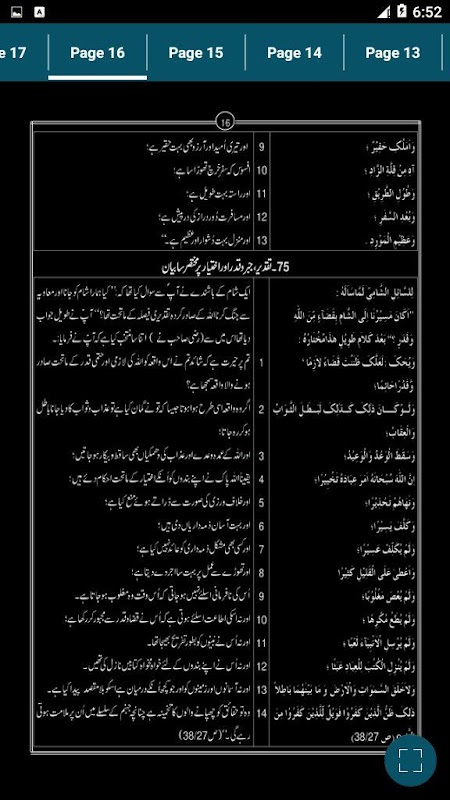 6:52
e 17
Page 16
Page 15
Page 14
Page 13
16
وَاَمَلُکَ حَقِیْرٌ ؛
9
اور تیری اُمید اور آرزو بھی بہت حقیر ہے؛
آہِ مِنْ قِلَّةِ الزَّادِ ؛
10
افسوس کہ سفر خرچ تھوڑا سا ہے؛
وَطُوْلِ الطَّرِیْقِ ؛
11
اور راستہ بہت طویل ہے؛
وَبُعْدِ السَّفَرِ ؛
12
اور مسافرت دُور دراز کی درپیش ہے؛
وَعَظِیْمِ الْمَوْرِدِ ۔
13
اور منزل بہت دُشوار اور عظیم ہے۔
75۔ تقدیر، جبر و قدر اور اختیار پر مختصر سا بیان
لِلسَّائِلِ الشَّامِیِّ لَمَّا سَاَلَهٗ :
ایک شام کے باشندے نے آپؑ سے سوال کیا تھا کہ: ’’کیا ہمارا شام کو جانا اور معاویہ سے
”اَکَانَ مَسِیْرُنَا اِلَی الشَّامِ بِقَضَآءٍ مِّنَ اللهِ
جنگ کرنا اللہ کے صادر کردہ تقدیری فیصلہ کے ماتحت تھا؟‘‘ آپؑ نے طویل جواب
وَقَدَرٍ ؟“ بَعْدَ کَلَامٍ طَوِیْلٍ هٰذَا مُخْتَارُهٗ :
دیا تھا جس میں سے (رضی صاحب نے) اتنا سا منتخب کیا ہے کہ آپؑ نے فرمایا:۔
وَیْحَکَ ؛ لَعَلَّکَ ظَنَنْتَ قَضَآءً لَازِمًا ؛
1
تم پر حیرت ہے کہ شاید تم نے اس واقعہ کو اللہ کی لازمی اور حتمی قدر کے ماتحت صادر
وَّقَدَرًا حَاتِمًا؛
ہونے والا واقعہ سمجھا ہے؟
وَلَوْ کَانَ ذٰلِکَ کَذٰلِکَ لَبَطَلَ الثَّوَابُ
2
اگر وہ واقعہ اسی طرح ہوا ہوتا جیسا کہ تو نے گمان کیا ہے تو عذاب و ثواب کا دیا جانا باطل
وَالْعِقَابُ؛
ہو کر رہ جاتا؛
وَسَقَطَ الْوَعْدُ وَالْوَعِیْدُ؛
3
اور اللہ کے عمدہ وعدے اور عذاب کی دھمکیاں بھی ساقط و بیکار ہو جاتیں؛
اِنَّ اللهَ سُبْحَانَهٗ اَمَرَ عِبَادَهٗ تَخْیِیْرًا ؛
4
یقیناً اللہ پاک نے اپنے بندوں کو اُنکے اختیار کے ماتحت احکام دئے ہیں؛
وَنَهَاهُمْ تَحْذِیْرًا ؛
5
اور خلاف ورزی کی صورت سے ڈراتے ہوئے منع کیا ہے؛
وَکَلَّفَ یَسِیْرًا ؛
6
اور بہت آسان ذمہ داریاں دی ہیں؛
وَلَمْ یُکَلِّفْ عَسِیْرًا ؛
7
اور کسی بھی مشکل ذمہ داری کو عائد نہیں کیا ہے؛
وَاَعْطٰی عَلَی الْقَلِیْلِ کَثِیْرًا ؛
8
اور تھوڑے سے عمل پر بہت سا اجر دے دیتا ہے؛
وَلَمْ یُعْصَ مَغْلُوْبًا ؛
9
اُس کی نافرمانی اسلئے نہیں ہو جاتی کہ اُس وقت وہ مغلوب ہو جاتا ہے۔
وَلَمْ یُطَعْ مُکْرِهًا ؛
10
اور نہ اسکی اطاعت اسلئے ہوتی ہے کہ اُس نے قضا و قدر سے مجبور کر رکھا ہے؛
وَلَمْ یُرْسِلِ الْاَنْبِیَآءَ لَعِبًا ؛
11
اور نہ اُس نے نبیوں کو بطور تفریح بھیجا تھا۔
وَلَمْ یُنْزِلِ الْکُتُبَ لِلْعِبَادِ عَبَثًا ؛
12
اور نہ اُس نے اپنے بندوں کے لئے خواہ مخواہ کتابیں نازل کی تھیں۔
وَلَا خَلَقَ السَّمٰوٰتِ وَالْاَرْضَ وَ مَا بَیْنَهُمَا بَاطِلًا
13
اور نہ آسمانوں اور زمینوں کو اور جو کچھ اُنکے درمیان ہے اسکو بلا مقصد پیدا کیا ہے۔
ذٰلِکَ ظَنُّ الَّذِیْنَ کَفَرُوْا فَوَیْلٌ لِّلَّذِیْنَ کَفَرُوْا مِنَ
14
وہ تو حقائق کو چھپانے والوں کا تخمینہ ہے چنانچہ جہنم کے سلسلے میں اُن پر ملامت ہوتی
(ص 38/27)
رہے گی۔‘‘ (ص 38/27)